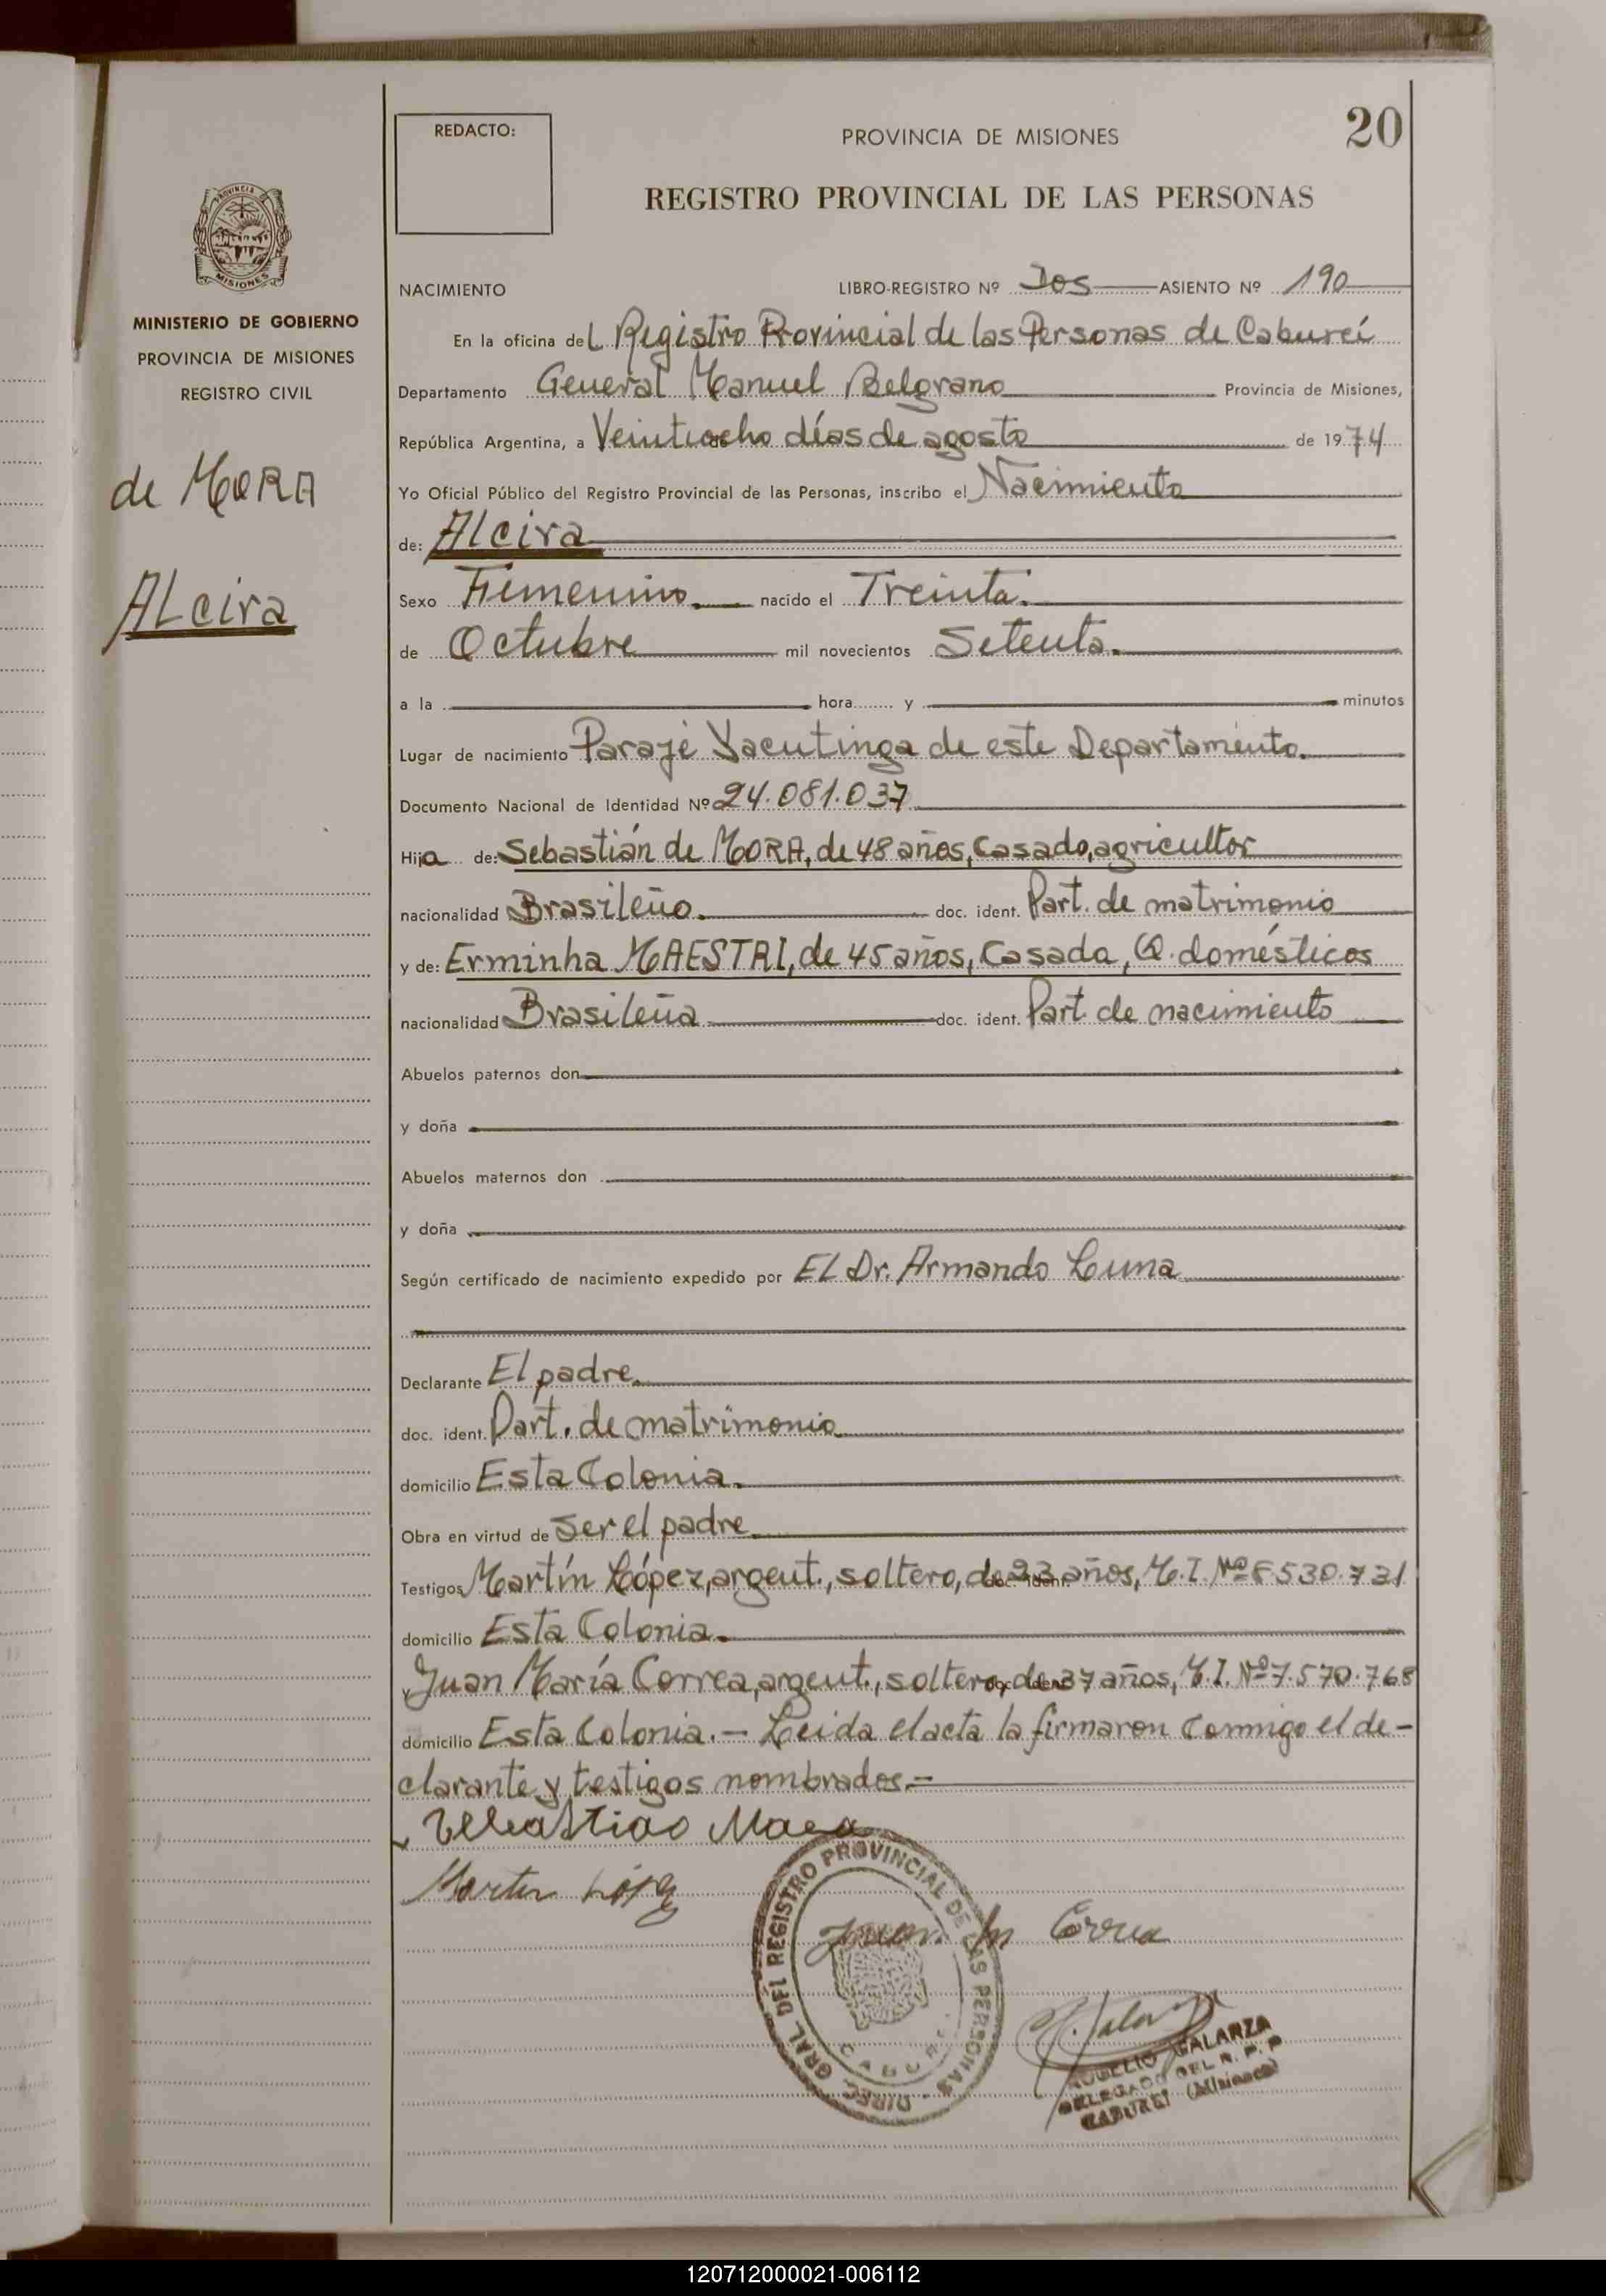 20
REDACTO:
PROVINCIA DE MISIONES
REGISTRO PROVINCIAL DE LAS PERSONAS
PROVINCIA
MISIONES
MINISTERIO DE GOBIERNO
PROVINCIA DE MISIONES
REGISTRO CIVIL
de MORA
ALcira
NACIMIENTO LIBRO-REGISTRO Nº Dos ASIENTO Nº 190
En la oficina del Registro Provincial de las Personas de Cabureí
Departamento General Manuel Belgrano Provincia de Misiones,
República Argentina, a Veintiocho días de agosto de 1974
Yo Oficial Público del Registro Provincial de las Personas, inscribo el Nacimiento
de: Alcira
Sexo Femenino. nacido el Treinta.
de Octubre mil novecientos Setenta.
a la hora y minutos
Lugar de nacimiento Paraje Yacutinga de este Departamento.
Documento Nacional de Identidad Nº 24.081.037
Hija de: Sebastián de MORA, de 48 años, Casado, agricultor
nacionalidad Brasileño. doc. ident. Part. de matrimonio
y de: Erminha MAESTRI, de 45 años, Casada, Q. domésticos
nacionalidad Brasileña doc. ident. Part. de nacimiento
Abuelos paternos don
y doña
Abuelos maternos don
y doña
Según certificado de nacimiento expedido por El Dr. Armando Luna
Declarante El padre.
doc. ident. Part. de matrimonio
domicilio Esta Colonia.
Obra en virtud de Ser el padre
Testigos Martín López, argent., soltero, de 23 años, M.I. Nº 8.530.731
domicilio Esta Colonia.
Juan María Correa, argent., soltero, de 37 años, M.I. Nº 7.570.768
domicilio Esta Colonia.- Leida el acta la firmaron Conmigo el de-
clarante y testigos nombrados.-
Sebastiao Mora
Martin López
Juan M Correa
DIREC. GRAL. DEL REGISTRO PROVINCIAL DE LAS PERSONAS
GALARZA
DELEGADO DEL R. P. P
CABUREI (Misiones)
120712000021-006112